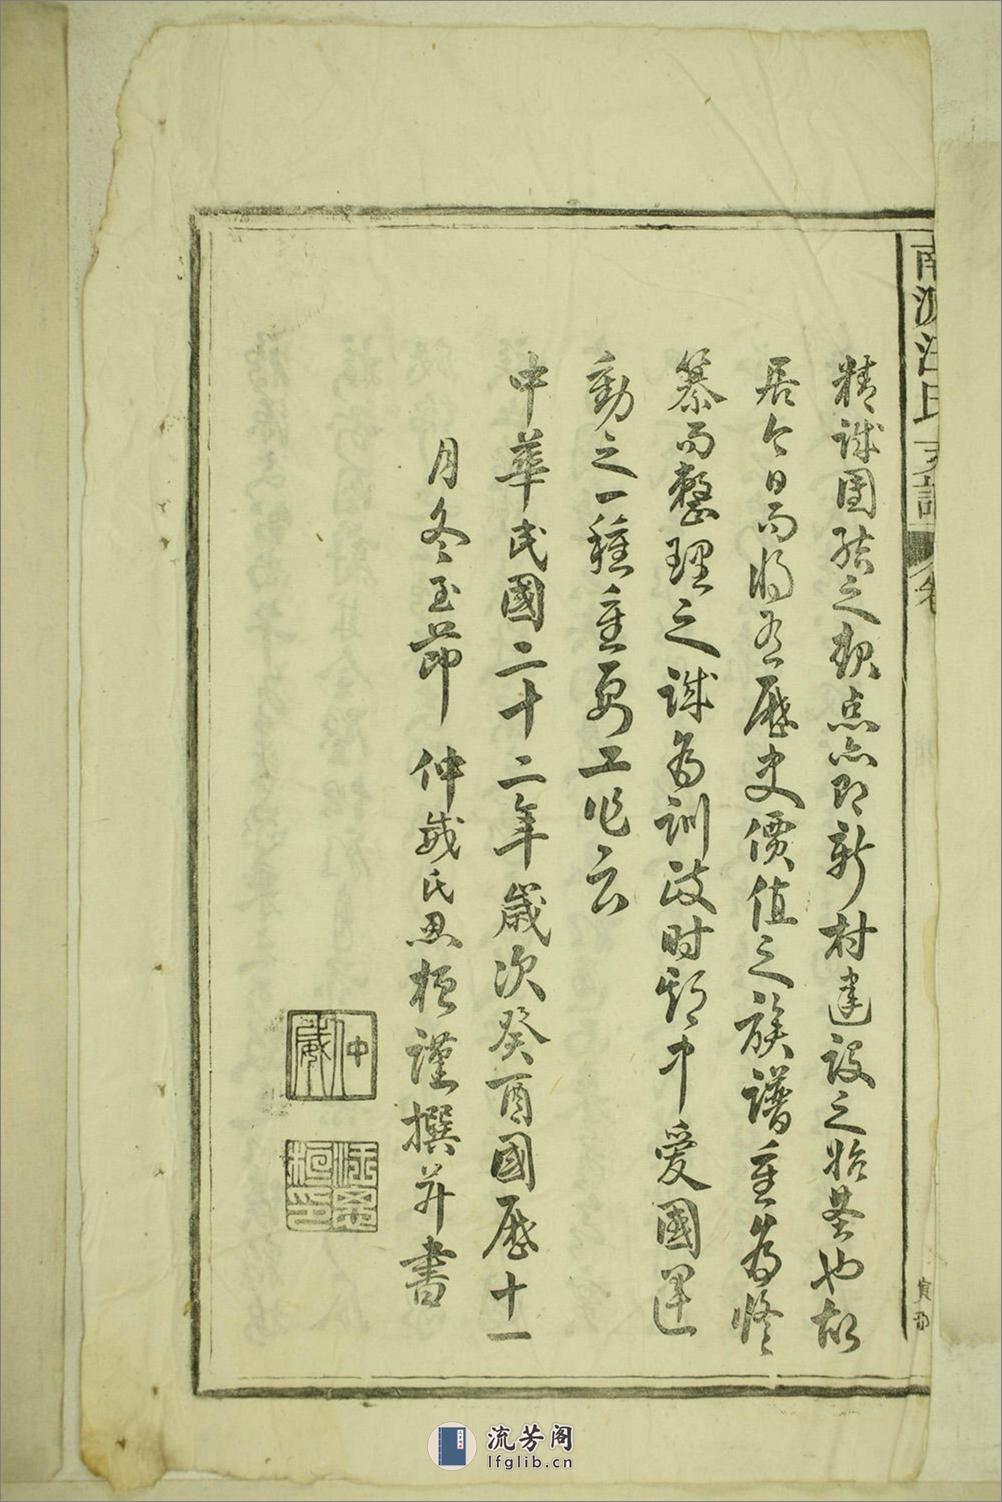 精誠團結之起點亦即新村建設之始基也故
居今日而將有歷史價值之族譜重為修
纂而整理之誠為訓政時期中愛國運
動之一種重要工作云
中華民國二十二年歲次癸酉國歷十一
月冬至節 仲威氏思桓謹撰并書
仲威
汪思桓印
南源汪氏支譜
卷
流芳阁
lfglib.cn